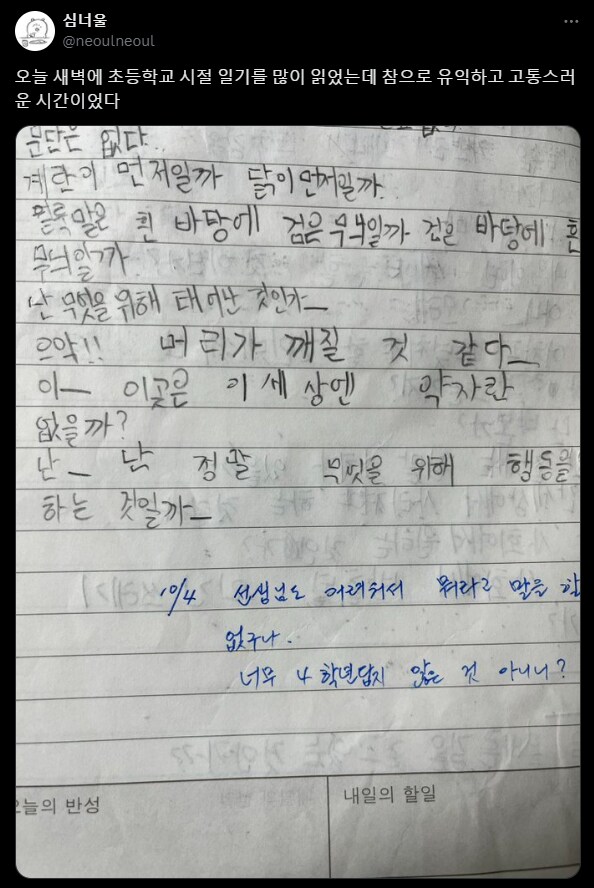 심너울
@neoulneoul
오늘 새벽에 초등학교 시절 일기를 많이 읽었는데 참으로 유익하고 고통스러
운 시간이었다
문단은 없다..
계란이 먼저일까 닭이먼저일까.
얼룩말은 흰 바탕에 검은무늬일까 검은 바탕에 흰
무늬일까.
난 무엇을 위해 태어난 것인가ㅡ
으악!! 머리가 깨질 것 같다ㅡ
아ㅡ 이곳은 이 세상엔 약자란
없을까?
난ㅡ 난 정말 무엇을 위해 행동을
하는 것일까ㅡ
10/4 선생님도 어려워서 뭐라고 말을 할
없구나.
너무 4학년답지 않은 것 아니니?
오늘의 반성
내일의 할일